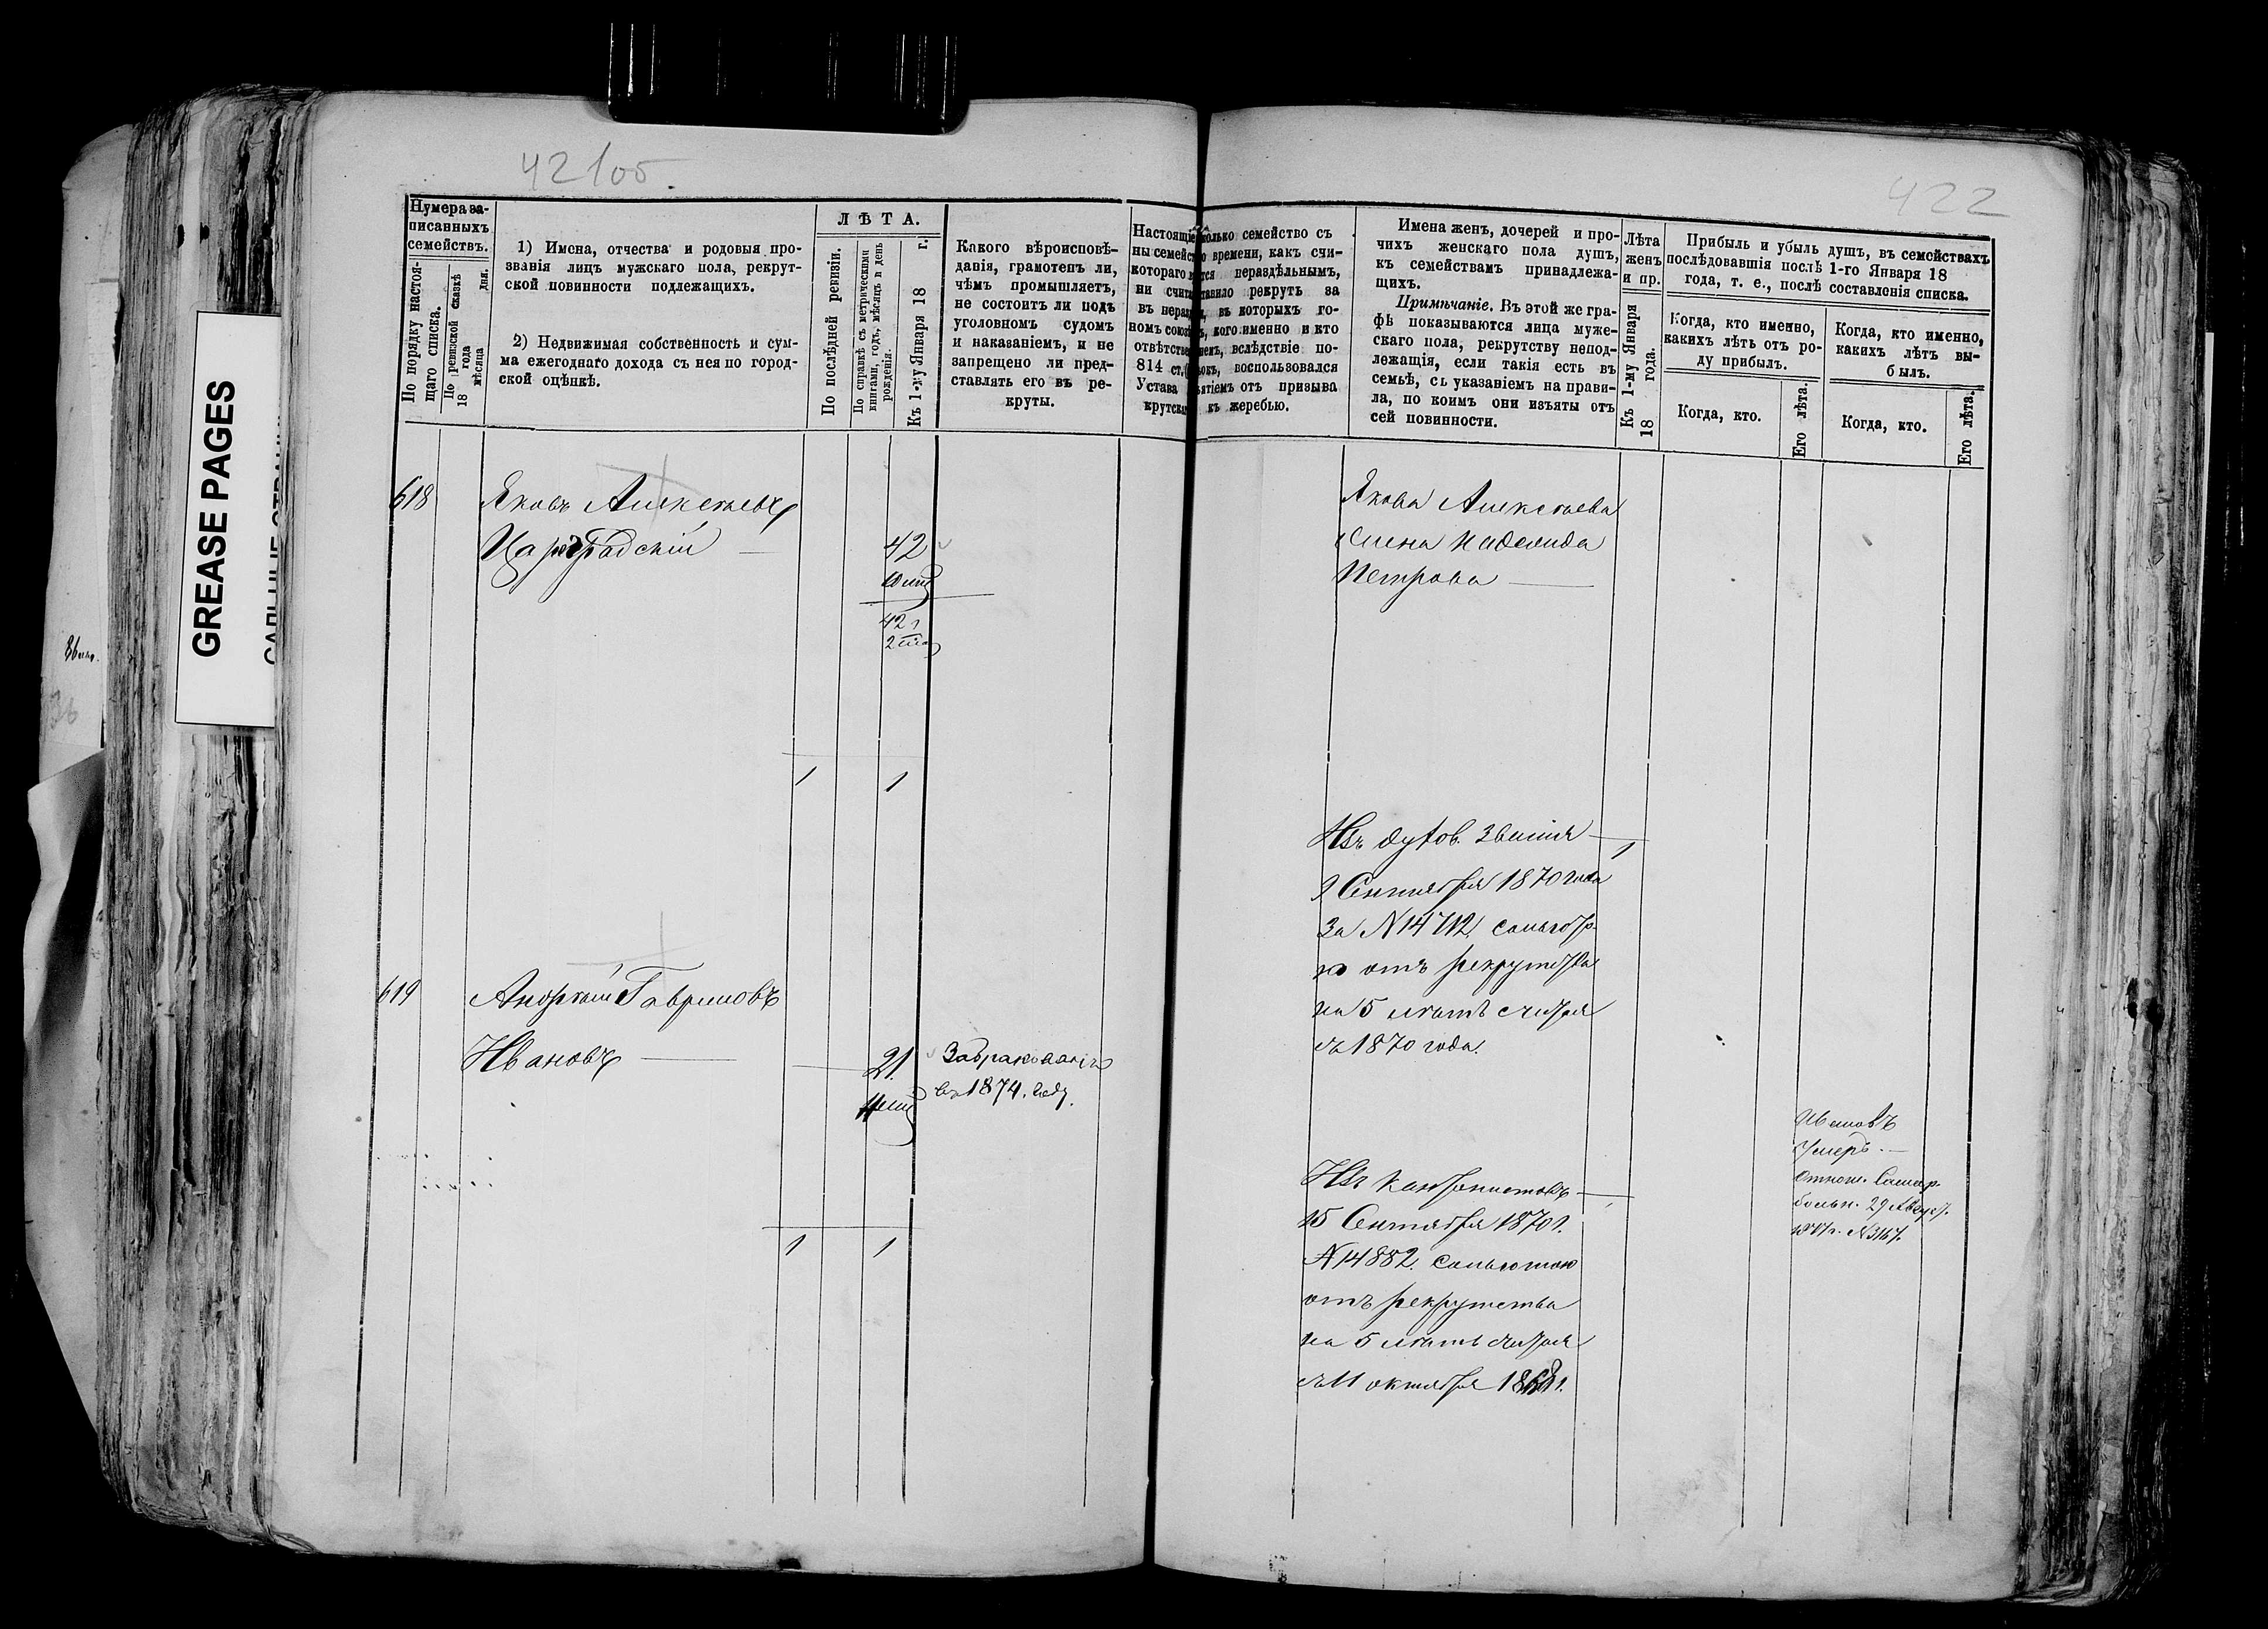 42 об.
422
GREASE PAGES
Нумера за-
писанныхъ
семействъ.
По порядку настоя-
щаго списка.
По ревизской сказкѣ
18 года
мѣсяца дня.
1) Имена, отчества и родовыя про-
званія лицъ мужскаго пола, рекрут-
ской повинности подлежащихъ.
2) Недвижимая собственность и сум-
ма ежегоднаго дохода съ нея по город-
ской оцѣнкѣ.
ЛѢТА.
По послѣдней ревизіи.
По справкѣ съ метрическими
книгами, годъ, мѣсяцъ и день
рожденія.
Къ 1-му Января 18 г.
Какого вѣроисповѣ-
данія, грамотенъ ли,
чѣмъ промышляетъ,
не состоитъ ли подъ
уголовномъ судомъ
и наказаніемъ, и не
запрещено ли пред-
ставлять его въ ре-
круты.
Настоящіе
ны семейс
котораго
ни счит
въ нераз
номъ союз
отвѣтстве
814 ст.
Устава
крутска
колько семейство съ
времени, какъ счи-
тся нераздѣльнымъ,
тавило рекрутъ за
въ которыхъ го-
кого именно и кто
вслѣдствіе по-
воспользовался
ятіемъ отъ призыва
къ жеребью.
Имена женъ, дочерей и про-
чихъ женскаго пола душъ,
къ семействамъ принадлежа-
щихъ.
Примѣчаніе. Въ этой же гра-
фѣ показываются лица муже-
скаго пола, рекрутству непод-
лежащія, если такія есть въ
семьѣ, съ указаніемъ на прави-
ла, по коимъ они изъяты отъ
сей повинности.
Лѣта
женъ
и пр.
Къ 1-му Января
18 года.
Прибыль и убыль душъ, въ семействахъ
послѣдовавшія послѣ 1-го Января 18
года, т. е., послѣ составленія списка.
Когда, кто именно,
какихъ лѣтъ отъ ро-
ду прибылъ.
Когда, кто.
Его лѣта.
Когда, кто именно,
какихъ лѣтъ вы-
былъ.
Когда, кто.
Его лѣта.
618
Яковъ Алексѣевъ
Цареградскій
42
42 г
1 1
Якова Алексѣева
жена Надежда
Петрова
Изъ духов. званія
1
Сентября 1870 года
за N
отъ рекрутства
на 5 лѣтъ считая
съ 1870 года.
619
Андрей Гавриловъ
Ивановъ
21
Забракованъ
въ 1874. году.
1 1
Изъ кантонистовъ
15 Сентября 1870 г.
N 14882. съ льготою
отъ рекрутства
на 5 лѣтъ считая
съ 11 октября
Ивановъ
умеръ.
отнош. Самар.
больн. 29 Август.
N 3167.